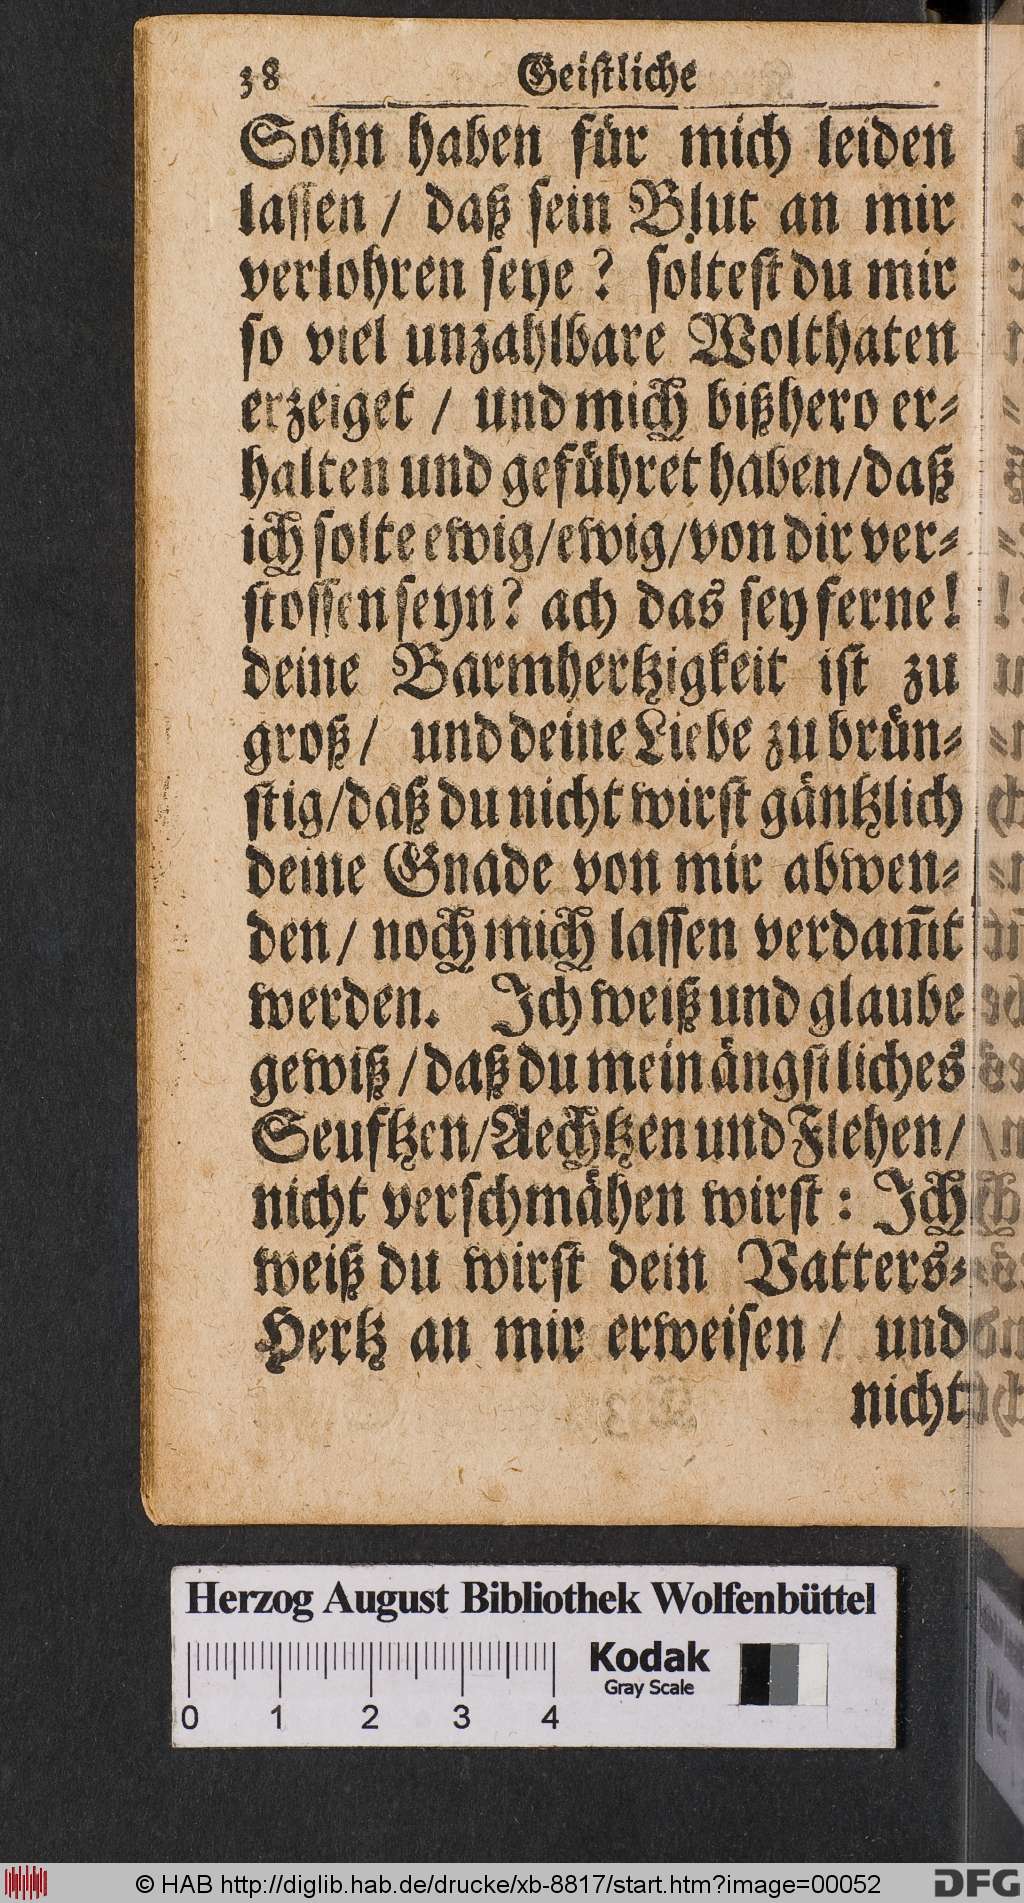 38 Geiſtliche
Sohn haben für mich leiden
laſſen / daß ſein Blut an mir
verlohren ſeye ? ſolteſt du mir
ſo viel unzahlbare Wolthaten
erzeiget / und mich bißhero er⸗
halten und geführet haben/daß
ich ſolte ewig/ewig/von dir ver⸗
ſtoſſen ſeyn? ach das ſey ferne!
deine Barmhertzigkeit iſt zu
groß / und deine Liebe zu brün⸗
ſtig/daß du nicht wirſt gäntzlich
deine Gnade von mir abwen⸗
den / noch mich laſſen verdam̃t
werden. Ich weiß und glaube
gewiß / daß du mein ängſtliches
Seuftzen/Aechtzen und Flehen/
nicht verſchmähen wirſt : Ich
weiß du wirſt dein Vatters⸗
Hertz an mir erweiſen / und
nicht
Herzog August Bibliothek Wolfenbüttel
Kodak
Gray Scale
0 1 2 3 4
© HAB http://diglib.hab.de/drucke/xb-8817/start.htm?image=00052
DFG